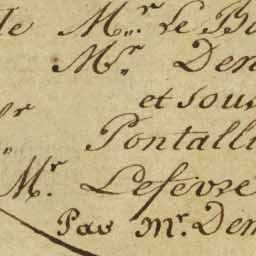 de Mr. Le B
Mr. Den
et sous
r. Pontalli
Mr. Lefevre
Par mr. Den